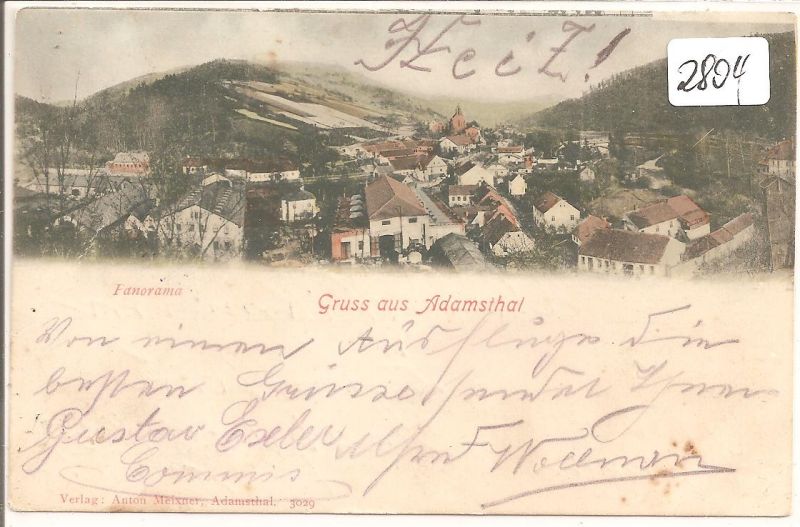 Heil!
2804
Panorama
Gruss aus Adamsthal
Von einem Ausfluge die
besten Grüsse sendet Ihnen
Gustav Exeler Alfred Wollman
Commis
Verlag: Anton Meixner, Adamsthal. 3029